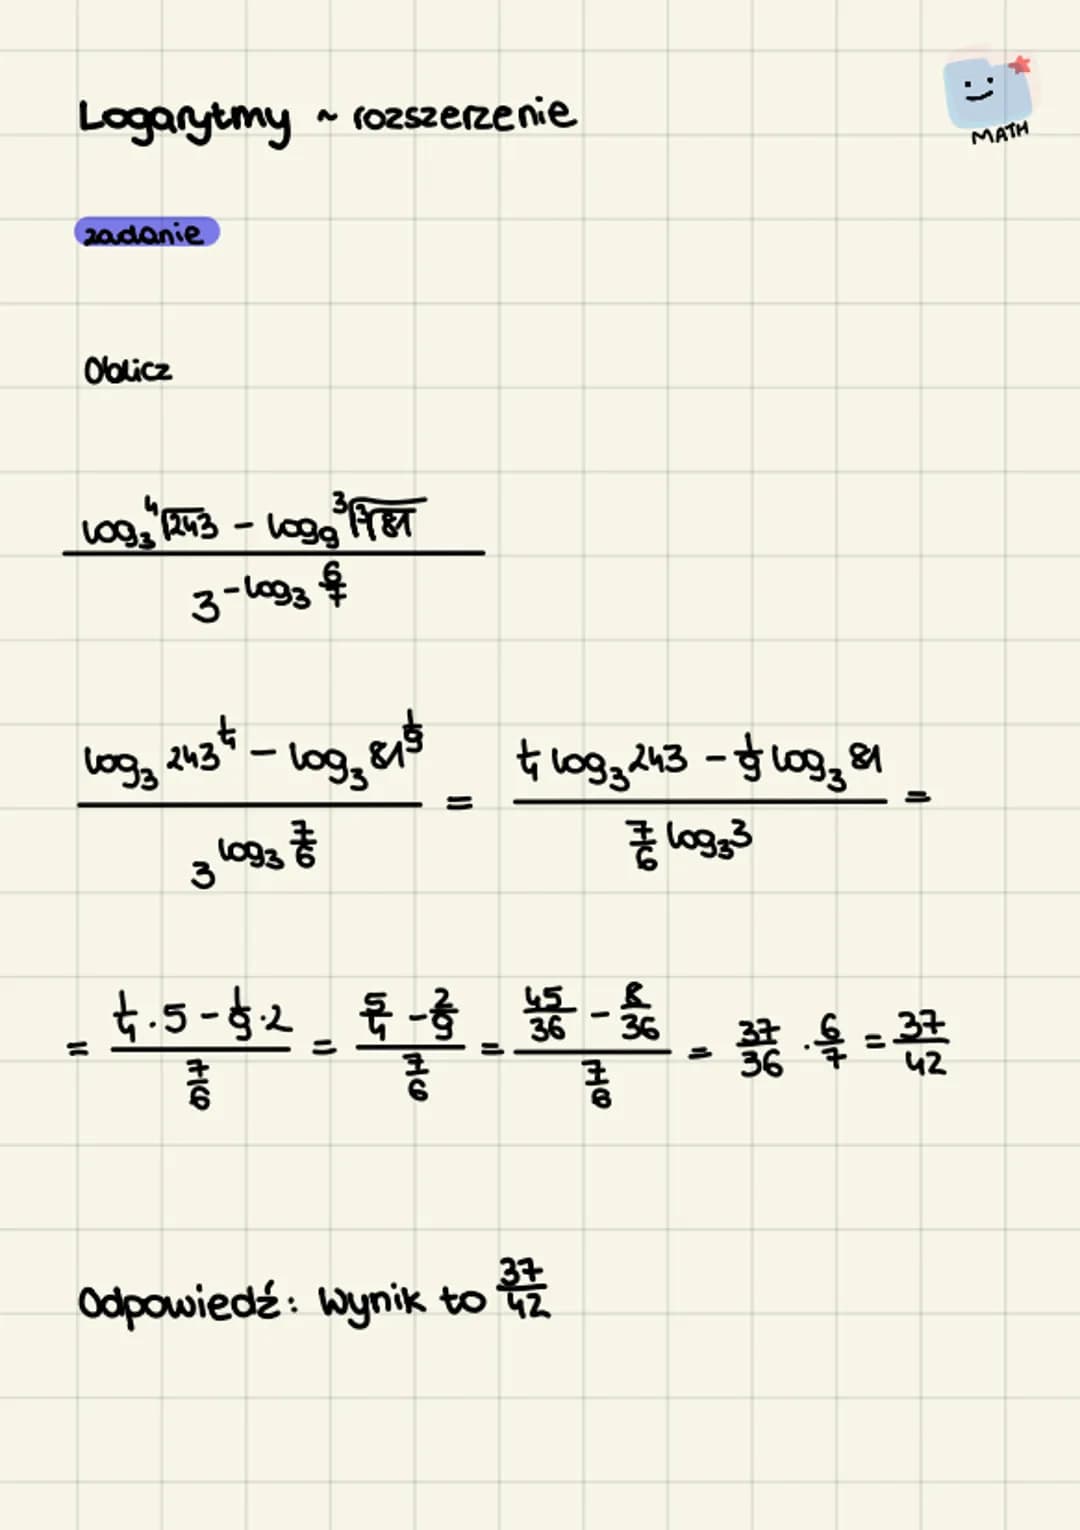 Logarytmy ~ rozszerzenie
MATH
zadanie
Oblicz
log₃ ⁴√243 - log₉ ³√(³√81)
3^(-log₃ 6/7)
log₃ 243^(1/4) - log₃ 81^(1/9) = 1/4 log₃ 243 - 1/9 log₃ 81 =
3^(log₃ 7/6) 7/6 log₃ 3
= (1/4 · 5 - 1/9 · 2)/(7/6) = (5/4 - 2/9)/(7/6) = (45/36 - 8/36)/(7/6) = 37/36 · 6/7 = 37/42
Odpowiedź: Wynik to 37/42